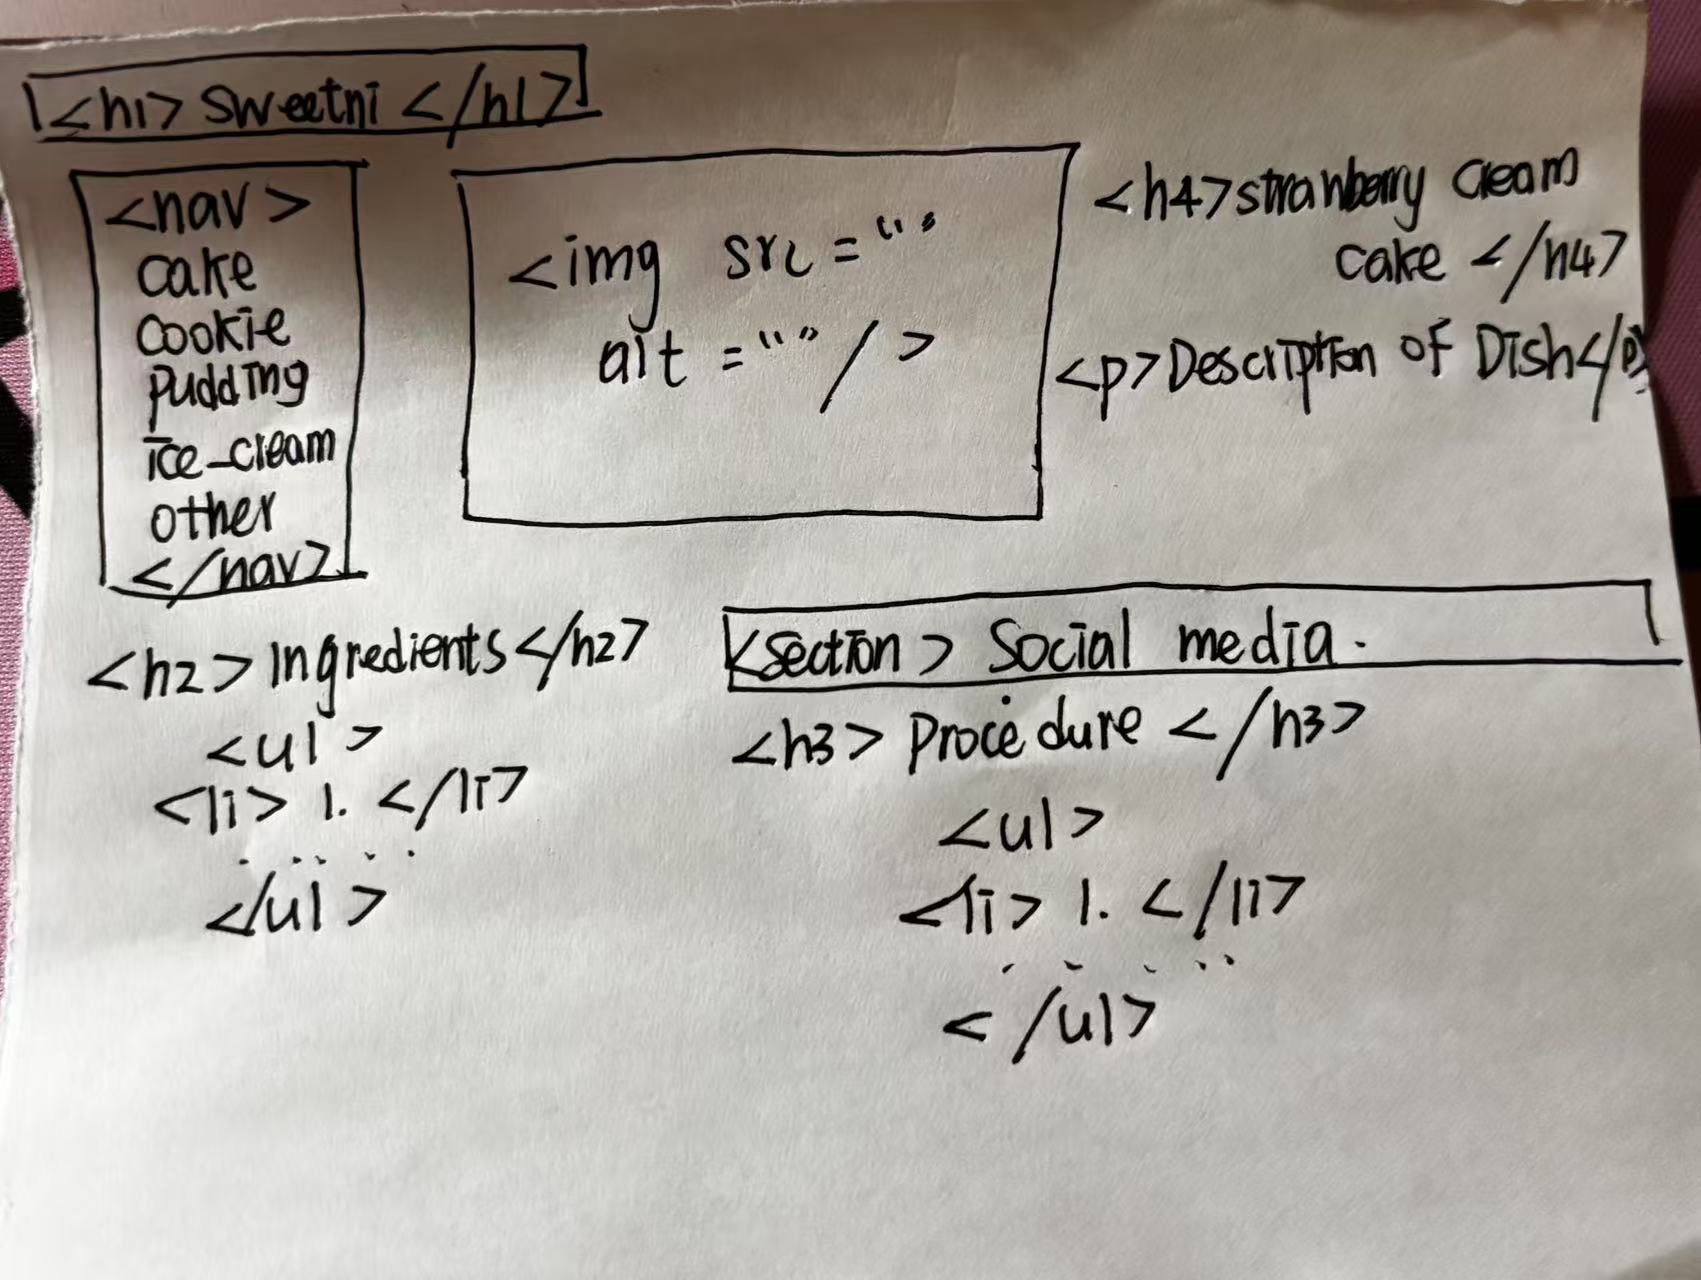 <h1> Sweetni </h1>
<nav>
cake
cookie
pudding
ice-cream
other
</nav>
<img src = “”
alt = “” / >
<h4>strawberry cream
cake </h4>
<p>Description of Dish</p>
<h2> Ingredients </h2>
<ul>
<li> 1. </li>
. . . . .
</ul>
<section> Social media.
<h3> Procedure </h3>
<ul>
<li> 1. </li>
. . . . .
</ul>